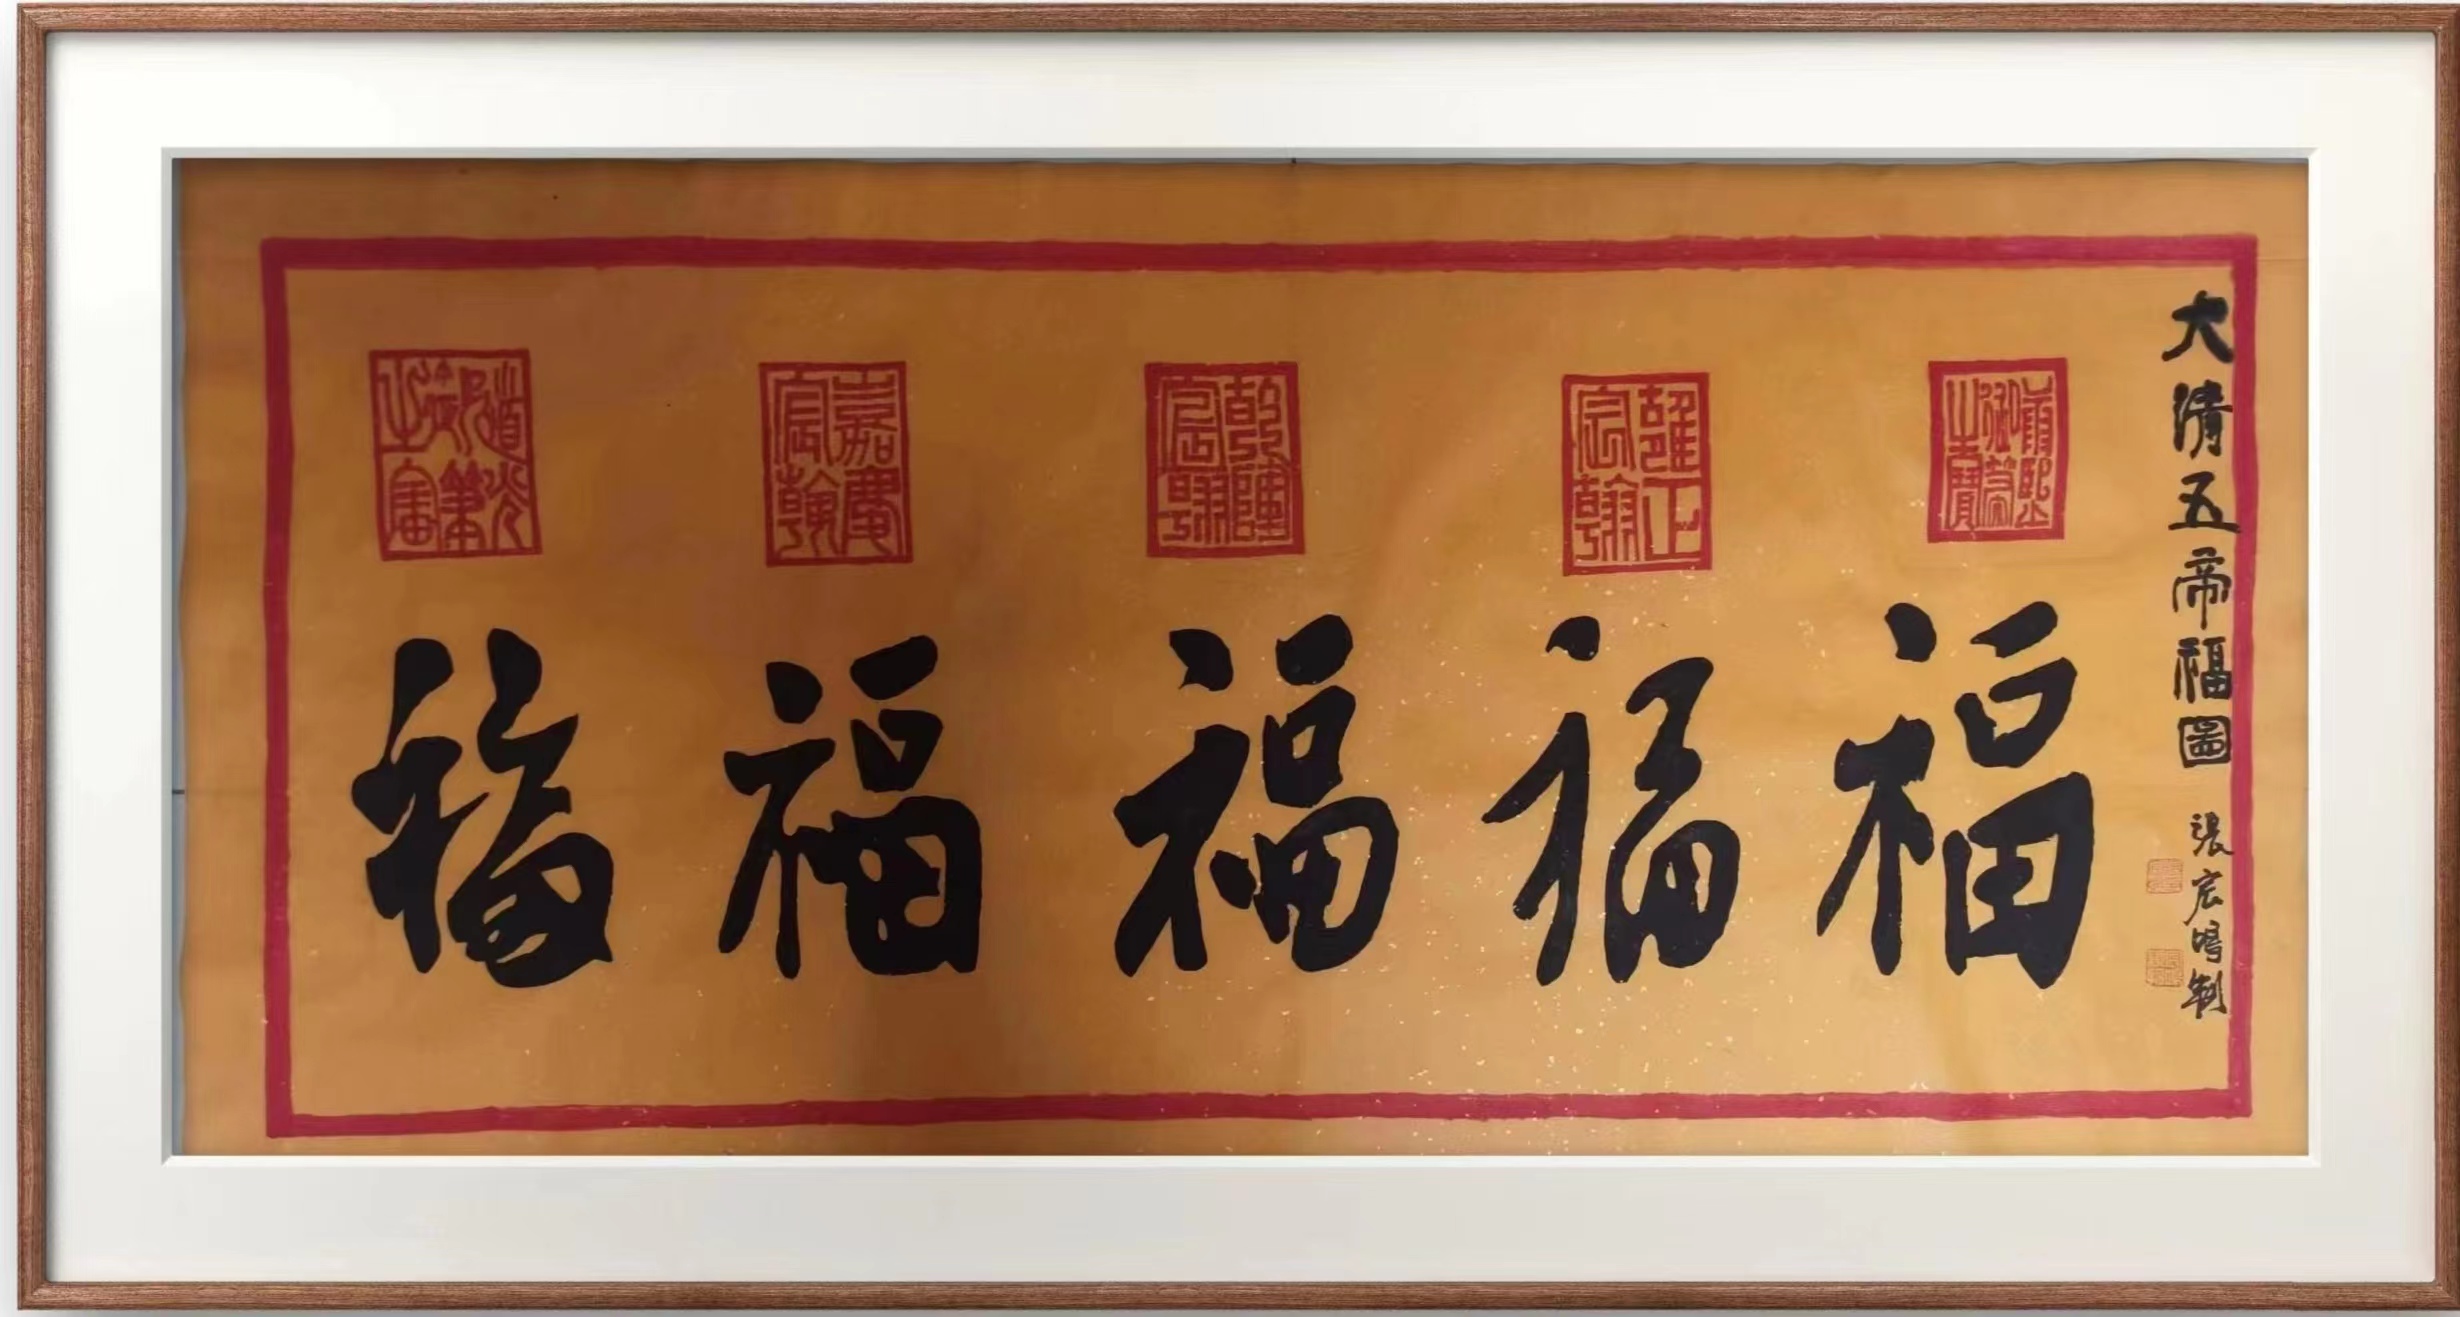 大清五帝福圖
張宏 制
康熙御筆之寶
福
雍正宸翰
福
乾隆宸翰
福
嘉慶宸翰
福
道光御筆之寶
福